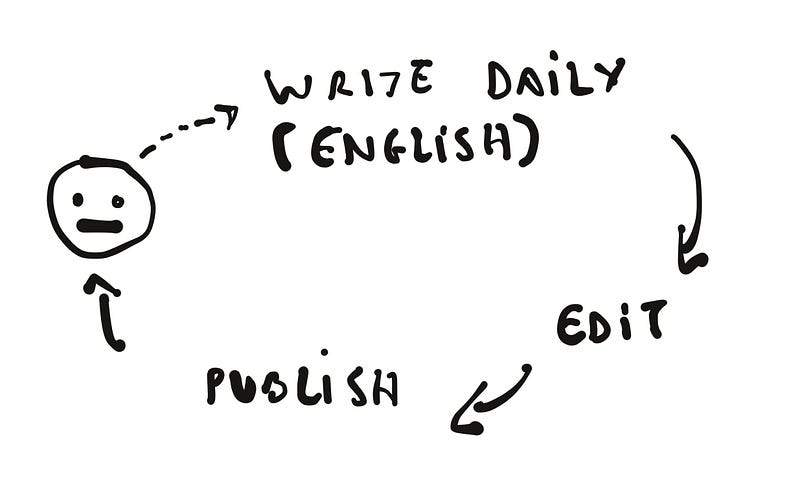 WRITE DAILY
(ENGLISH)
EDIT
PUBLISH